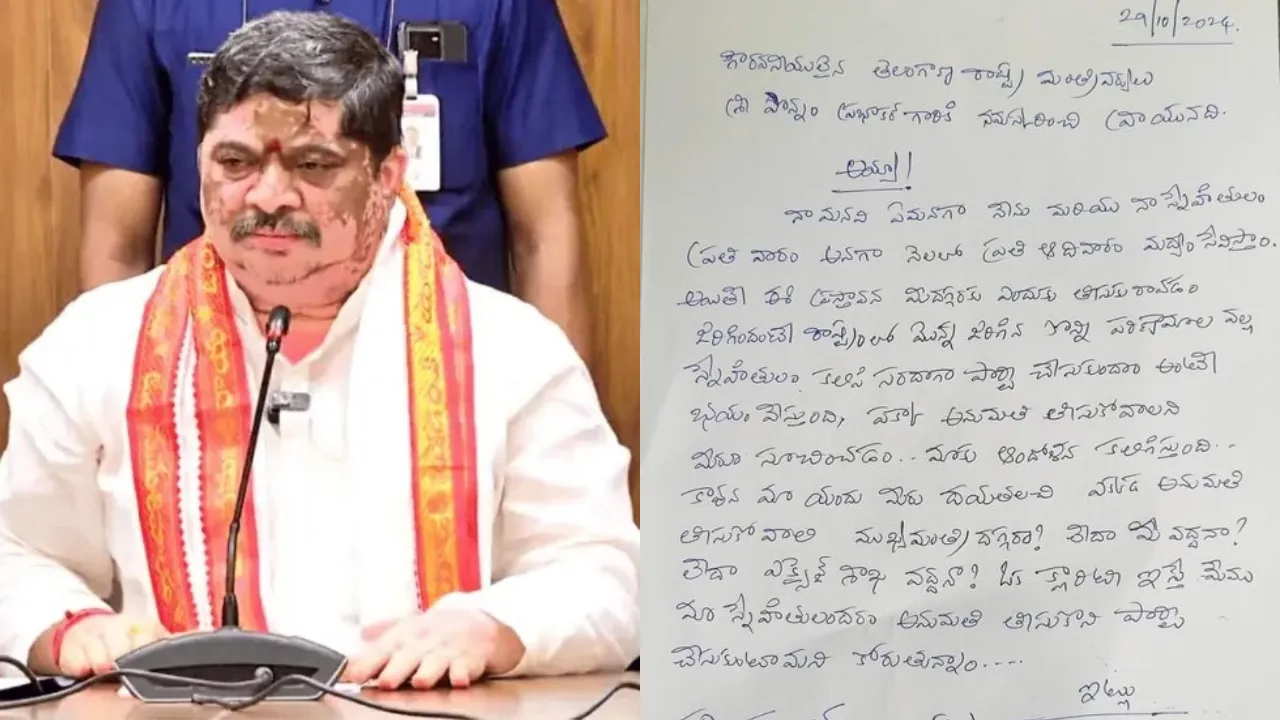 29/10/2024.
గౌరవనీయులైన తెలంగాణ రాష్ట్ర మంత్రివర్యులు
శ్రీ పొన్నం ప్రభాకర్ గారికి నమస్కరించి వ్రాయునది.
అయ్యా!
నా మనవి ఏమనగా నేను మరియు నా స్నేహితులం
ప్రతి వారం అనగా నెలలో ప్రతి ఆదివారం మద్యం సేవిస్తాం.
అయితే ఈ ప్రస్తావన మీదగ్గరకు ఎందుకు తీసుకు రావడం
జరిగిందంటే రాష్ట్రంలో మొన్న జరిగిన కొన్ని పరిణామాల వల్ల
స్నేహితులం కలిసి సరదాగా పార్టీ చేసుకుందాం అంటే
భయం వేస్తుంది, అనుమతి తీసుకోవాలని
మీరు సూచించడం.. మాకు ఆందోళన కలిగిస్తుంది..
కావున మా యందు మీరు దయతలచి ఎక్కడ అనుమతి
తీసుకోవాలి ముఖ్యమంత్రి దగ్గరా? లేదా మీ వద్దనా?
లేదా ఎక్సైజ్ శాఖ వద్దనా? ఓక క్లారిటీ ఇస్తే మేము
మా స్నేహితులందరం అనుమతి తీసుకొని పార్టీ
చేసుకుంటామని కోరుతున్నాం....
ఇట్లు